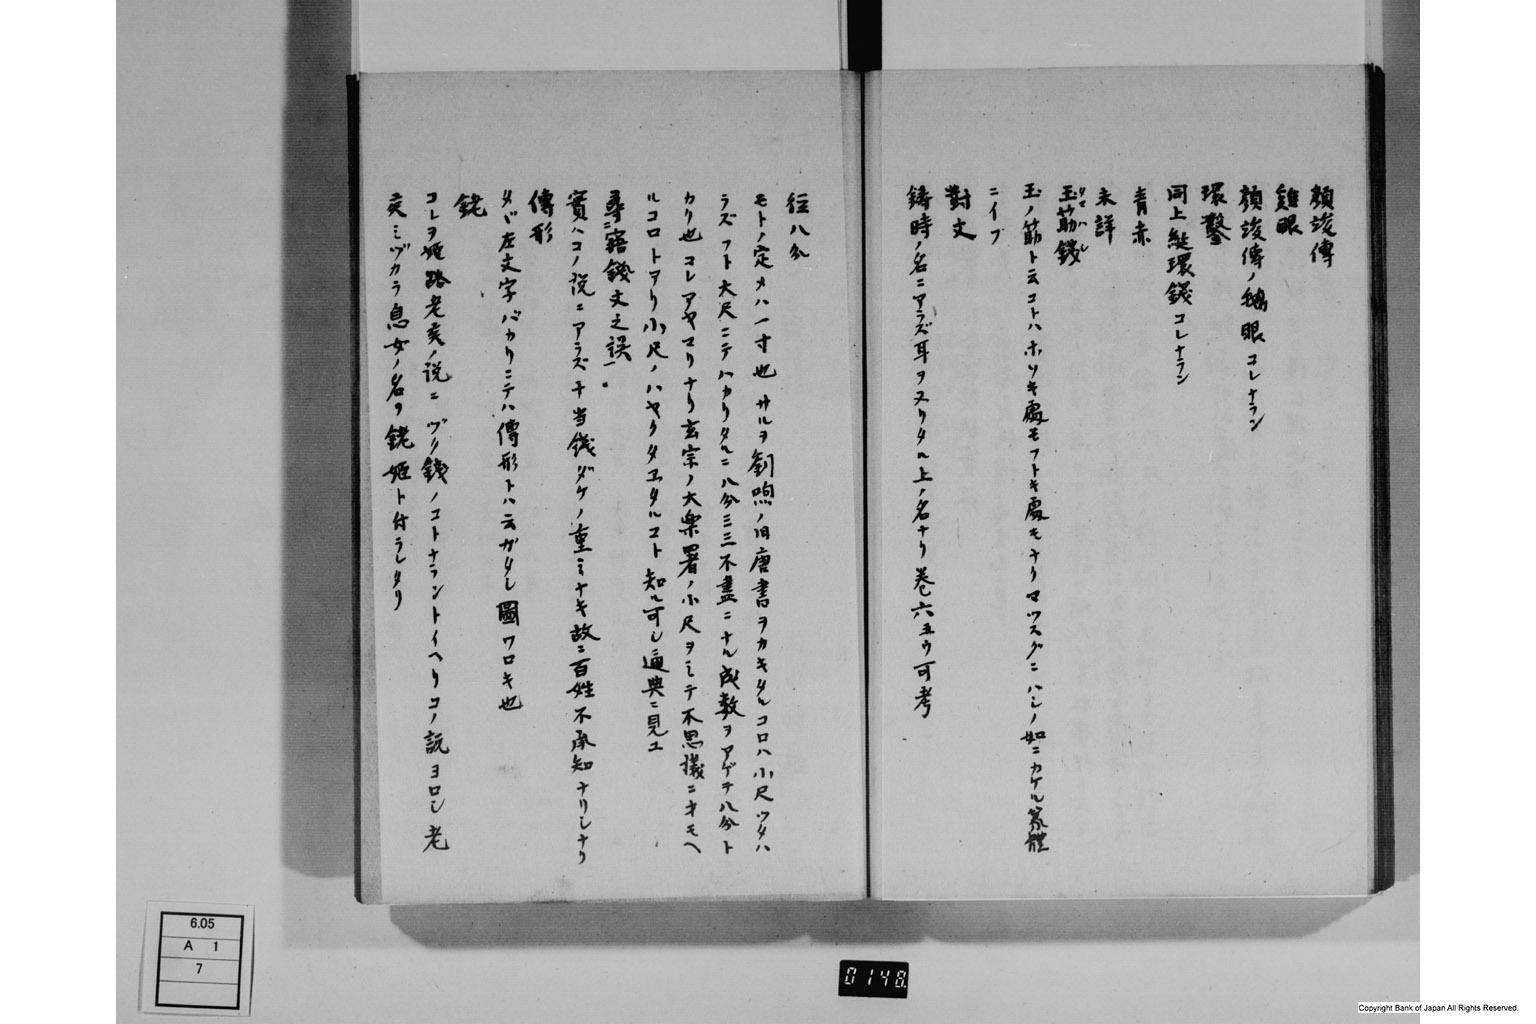 顔竣傳
雞眼
顔竣傳ノ鵝眼コレナラン
環鑿
同上綖環錢コレナラン
青赤
未詳
玉筋錢
玉ノ筋ト云コトハホソキ處モフトキ處モナクマツスグニハシノ如ニカケル篆體
ニイブ
對文
鋳時ノ名ニアラズ耳ヲスリタル上ノ名ナリ卷六五ウ可考
徑八分
モトノ定メハ一寸也サルヲ劉煦ノ旧唐書ヲカキタルコロハ小尺ツタハ
ラズフト大尺ニテハカリタルニ八分三三不盡ニナル成数ヲアゲテ八分ト
カリ也コレアヤマリナリ玄宗ノ大樂署ノ小尺ヲミテ不思議ニオモヘ
ルコロトヲリ小尺ノハヤクタヱタルコト知ル可シ通典ニ見ユ
尋寤錢文之誤
實ハコノ説ニアラズ千当錢ダケノ重ミナキ故ニ百姓不承知ナリシナリ
傳形
タヾ左文字バカリニテハ傳形トハ云ガタシ圖ワロキ也
銠
コレヲ姫路老亥ノ説ニヅク錢ノコトナラントイヘリコノ説ヨロシ老
亥ミヅカラ息女ノ名ヲ銠姫ト付ラレタリ
6.05
A 1
7
0148
Copyright Bank of Japan All Rights Reserved.